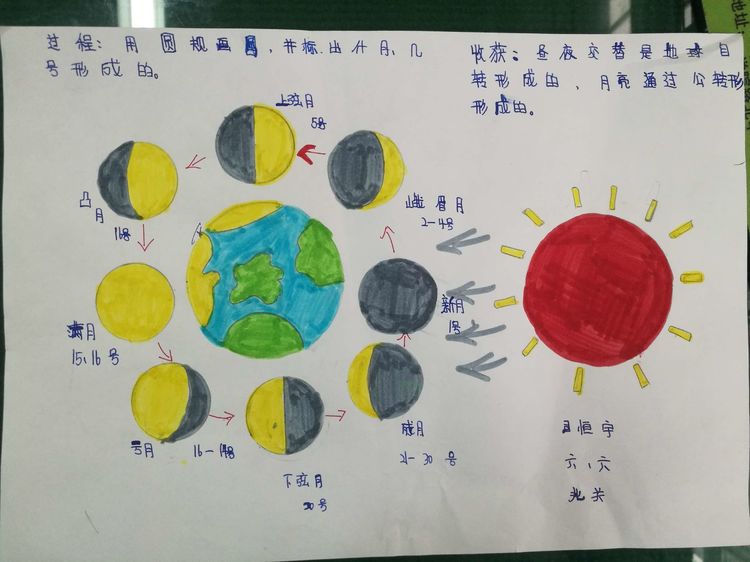 过程：用圆规画圆，并标出什月，几
号形成的。
收获：昼夜交替是地球自
转形成的，月亮通过公转形
形成的。
上弦月
8号
峨眉月
2-4号
凸
月
11号
新月
1号
满月
15、16号
弓月
下弦月
20号
残月
21-30号
恒宇
六、六